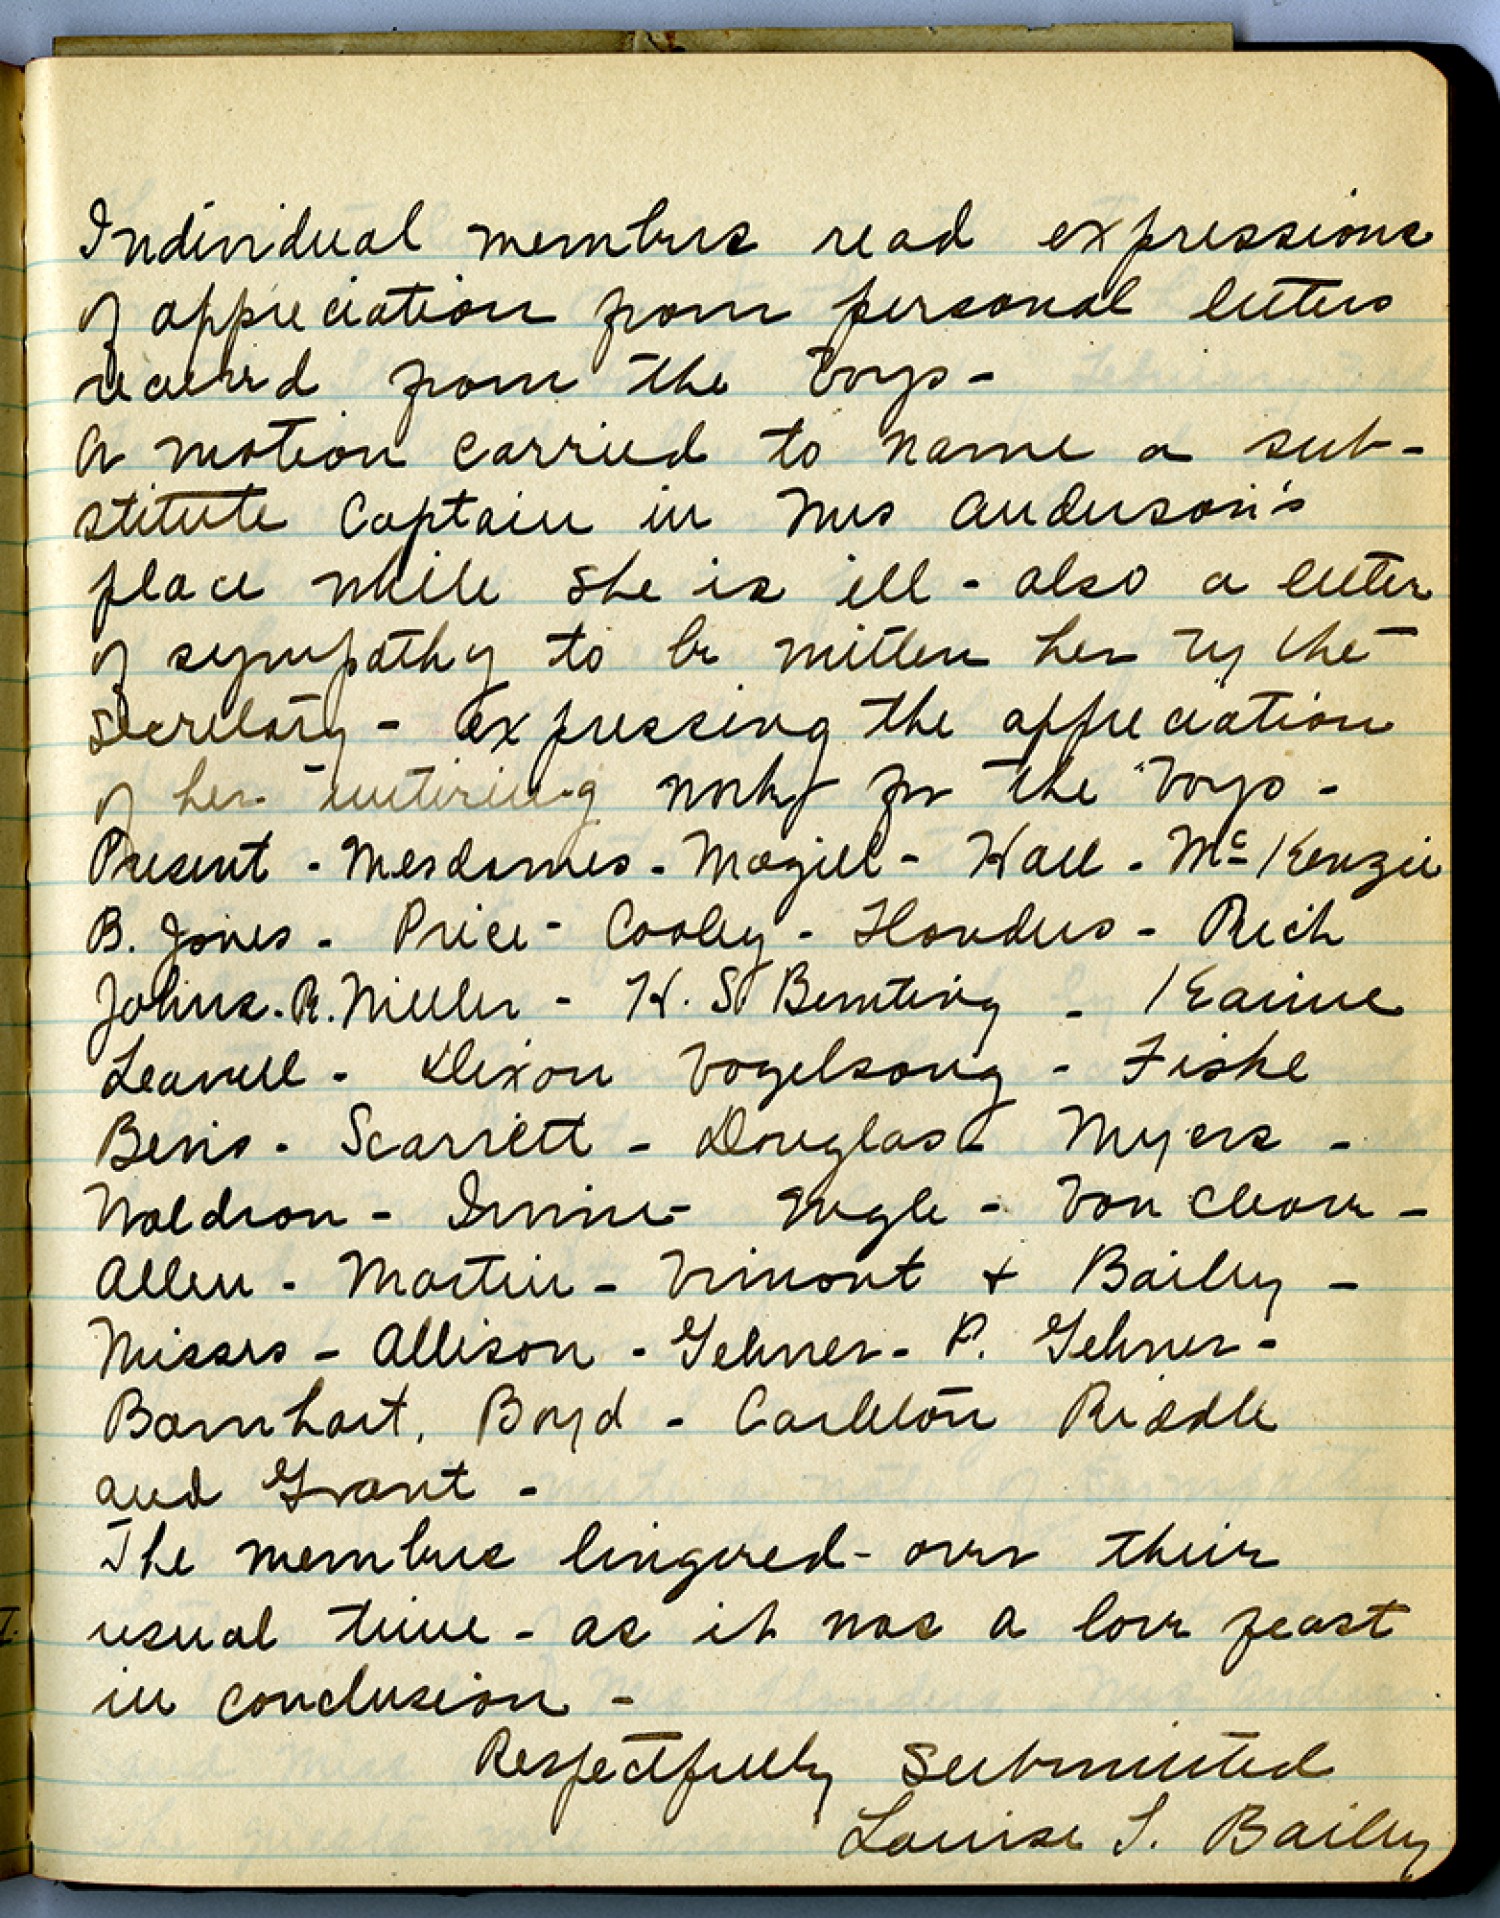 Individual members read expressions
of appreciation from personal letters
received from the boys -
A motion carried to name a sub-
stitute Captain in Mrs Anderson's
place while she is ill - also a letter
of sympathy to be written her by the
Secretary - expressing the appreciation
of her untiring work for the boys -
Present - Mesdames - Magill - Hall - McKenzie
B. Jones - Price - Cooley - Flanders - Rich
Johns - R. Miller - H. S Bunting - Kaine
Leavell - Dixon Vogelsong - Fiske
Bevis - Scarritt - Douglas - Myers -
Waldron - Irvine - Engle - Von Cleave -
Allen - Martin - Vimont + Bailey -
Misses - Allison - Gehner - P. Gehner -
Barnhart, Boyd - Carleton Riddle
and Grant -
The members lingered - over their
usual time - as it was a love feast
in conclusion -
Respectfully Submitted
Louise S. Bailey